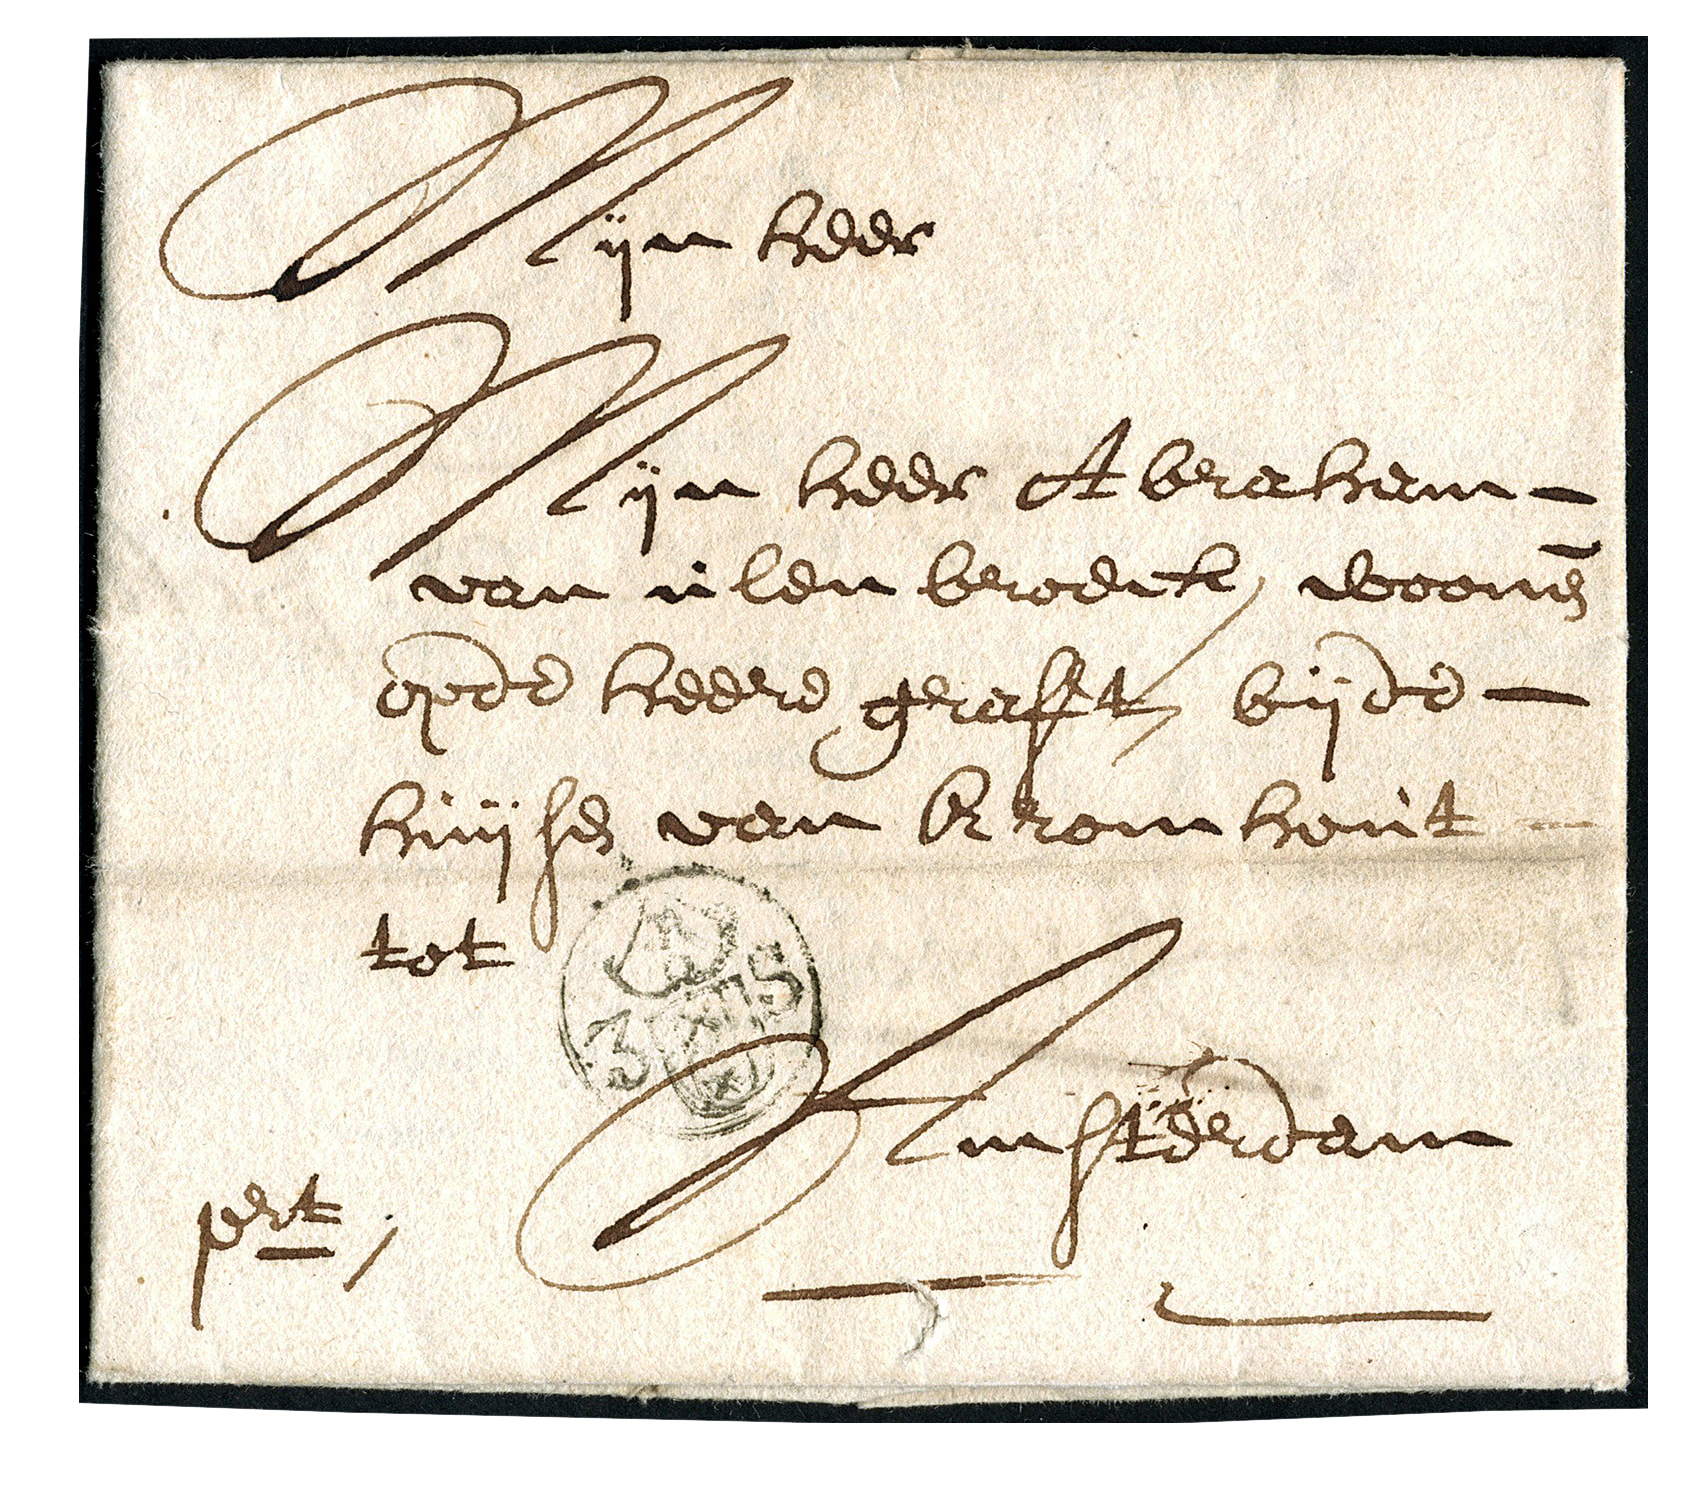 Mijn heer
Mijn heer Abraham
van ulen broeck, woonen
opde heere grafft, bijde
huijsen van Kromhout
tot
3 S
Amsterdam
port